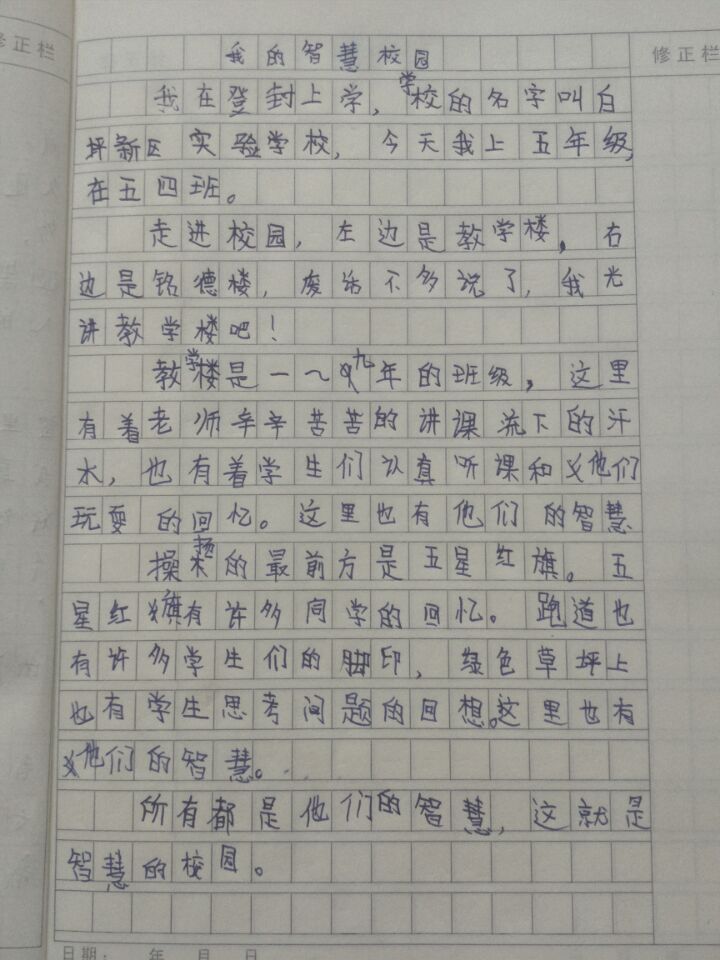 修正栏
修正栏
我的智慧校园
我在登封上学，学校的名字叫白
坪新区实验学校，今天我上五年级，
在五四班。
走进校园，左边是教学楼，右
边是铭德楼，废话不多说了，我先
讲教学楼吧！
教学楼是一～九年的班级，这里
有着老师辛辛苦苦的讲课流下的汗
水，也有着学生们认真听课和他们
玩耍的回忆。这里也有他们的智慧
操场的最前方是五星红旗。五
星红旗有许多同学的回忆。跑道也
有许多学生们的脚印，绿色草坪上
也有学生思考问题的回想。这里也有
他们的智慧。
所有都是他们的智慧，这就是
智慧的校园。
日期： 年 月 日